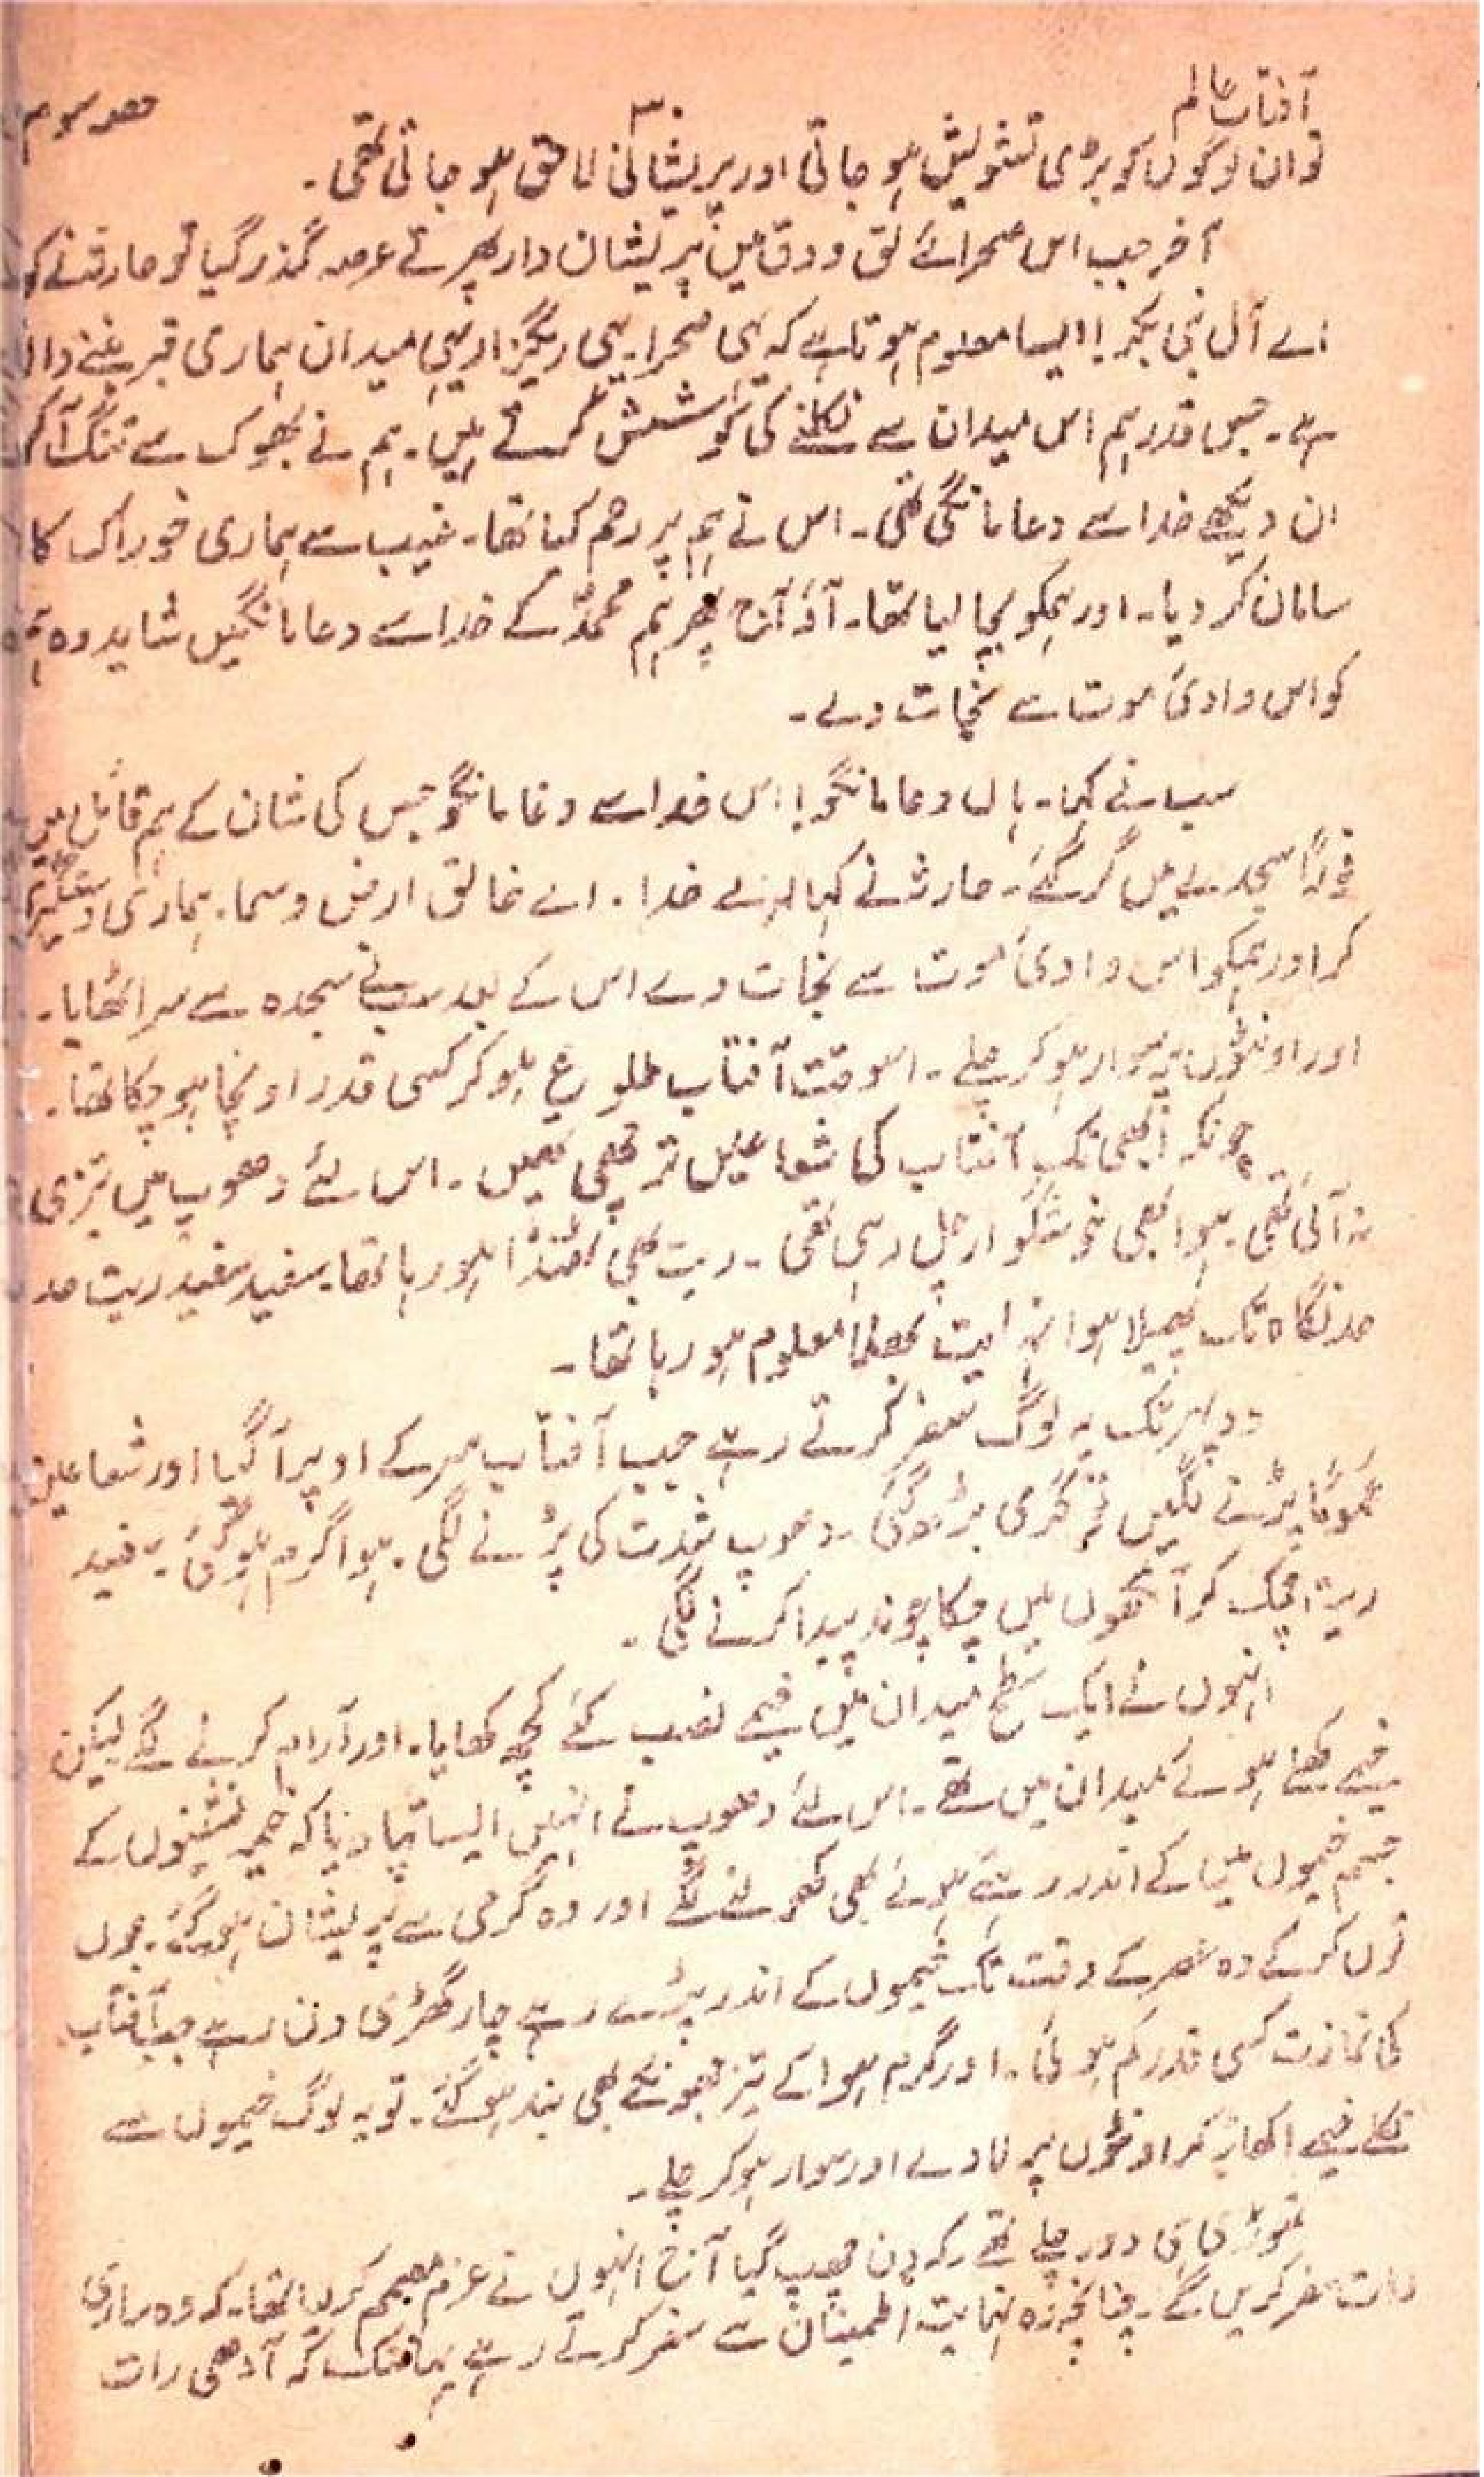 آفتاب عالم
۳۰
حصہ سوم
توان لوگوں کو بڑی تشویش ہو جاتی اور پریشانی لاحق ہو جاتی تھی۔
آخر جب اس صحرائے لق و دق میں پریشان وار پھرتے عرصہ گذر گیا تو حارث نے کہا
اے آل بنی بکر! ایسا معلوم ہوتا ہے کہ یہی صحرا یہی ریگزار یہی میدان ہماری قبر بننے والا
ہے۔ جس قدر ہم اس میدان سے نکلنے کی کوشش کرتے ہیں۔ ہم نے بھوک سے تنگ آ کر
ان دیکھے خدا سے دعا مانگی تھی۔ اس نے ہم پر رحم کیا تھا۔ غیب سے ہماری خوراک کا
سامان کر دیا۔ اور ہمکو بچا لیا تھا۔ آؤ آج پھر ہم محمدؐ کے خدا سے دعا مانگیں شاید وہ ہم
کو اس وادیٔ موت سے نجات دے۔
سب نے کہا۔ ہاں دعا مانگو! اس خدا سے دعا مانگو جس کی شان کے ہم قائل ہیں
فوراً سجدے میں گر گئے۔ حارث نے کہا اے خدا۔ اے خالق ارض و سما۔ ہماری دستگیری
کر اور ہمکو اس وادیٔ موت سے نجات دے اس کے بعد سب نے سجدہ سے سر اٹھایا۔
اور اونٹوں پر سوار ہو کر چلے۔ اسوقت آفتاب طلوع ہو کر کسی قدر اونچا ہو چکا تھا۔
چونکہ ابھی تک آفتاب کی شعاعیں ترچھی تھیں۔ اس لئے دھوپ میں تیزی
نہ آئی تھی۔ ہوا بھی خوشگوار چل رہی تھی۔ ریت بھی ٹھنڈا ہو رہا تھا۔ سفید سفید ریت حد
حد نگاہ تک پھیلا ہوا نہایت بھلا معلوم ہو رہا تھا۔
دوپہر تک یہ لوگ سفر کرتے رہے جب آفتاب سر کے اوپر آ گیا اور شعاعیں
عموداً پڑنے لگیں تو گرمی بڑھ گئی۔ دھوپ شدت کی پڑنے لگی۔ ہوا گرم ہو گئی۔ سفید
ریت چمک کر آنکھوں میں چکا چوند پیدا کرنے لگی۔
انہوں نے ایک سطح میدان میں خیمے نصب کئے کچھ کھایا۔ اور آرام کرنے لگے لیکن
خیمے کھلے ہوئے میدان میں تھے۔ اس لئے دھوپ نے انہیں ایسا تپا دیا کہ خیمہ نشینوں کے
جسم خیموں کے اندر رہتے ہوئے بھی کھولنے لگے اور وہ گرمی سے پریشان ہو گئے۔ جوں
توں کر کے وہ عصر کے وقت تک خیموں کے اندر پڑے رہے چار گھڑی دن رہے جب آفتاب
کی تمازت کسی قدر کم ہوئی۔ اور گرم ہوا کے تیز جھونکے بھی بند ہو گئے۔ تو یہ لوگ خیموں سے
نکلے خیمے اکھاڑ کر اونٹوں پر لادے اور سوار ہو کر چلے۔
تھوڑی ہی دور چلے تھے کہ دن چھپ گیا آج انہوں نے عزم مصمم کر لیا تھا۔ کہ وہ ساری
رات سفر کریں گے۔ چنانچہ وہ نہایت اطمینان سے سفر کرتے رہے یہانتک کہ آدھی رات